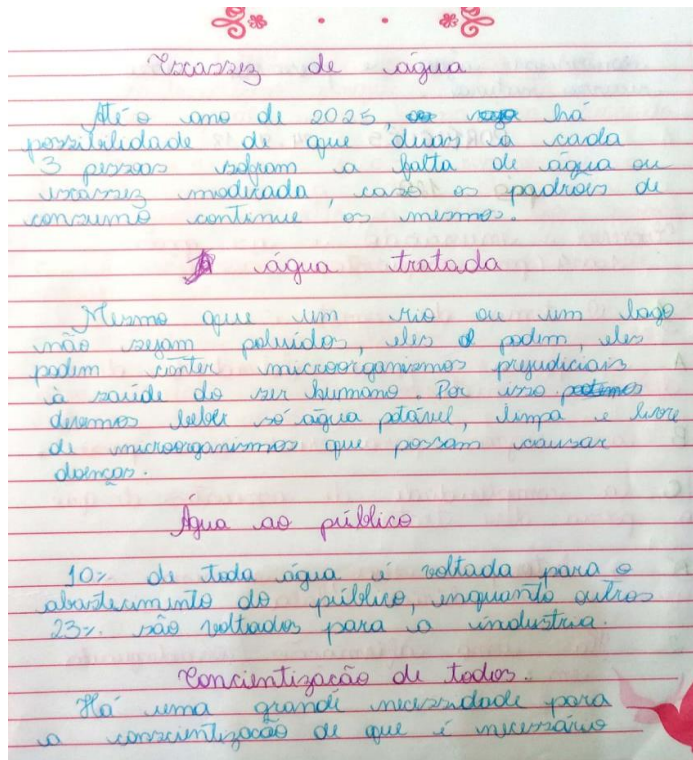 Escassez de água
Até o ano de 2025, há
possibilidade de que duas a cada
3 pessoas sofram a falta de água ou
escassez moderada, caso os padrões de
consumo continue os mesmos.
água tratada
Mesmo que um rio ou um lago
não sejam poluídos, eles podem, eles
podem conter microorganismos prejudiciais
à saúde do ser humano. Por isso
devemos beber só água potável, limpa e livre
de microorganismos que possam causar
doenças.
Água ao público
10% de toda água é voltada para o
abastecimento do público, enquanto outros
23% são voltados para a industria.
Concientização de todos.
Há uma grande necessidade para
a conscientização de que é necessário